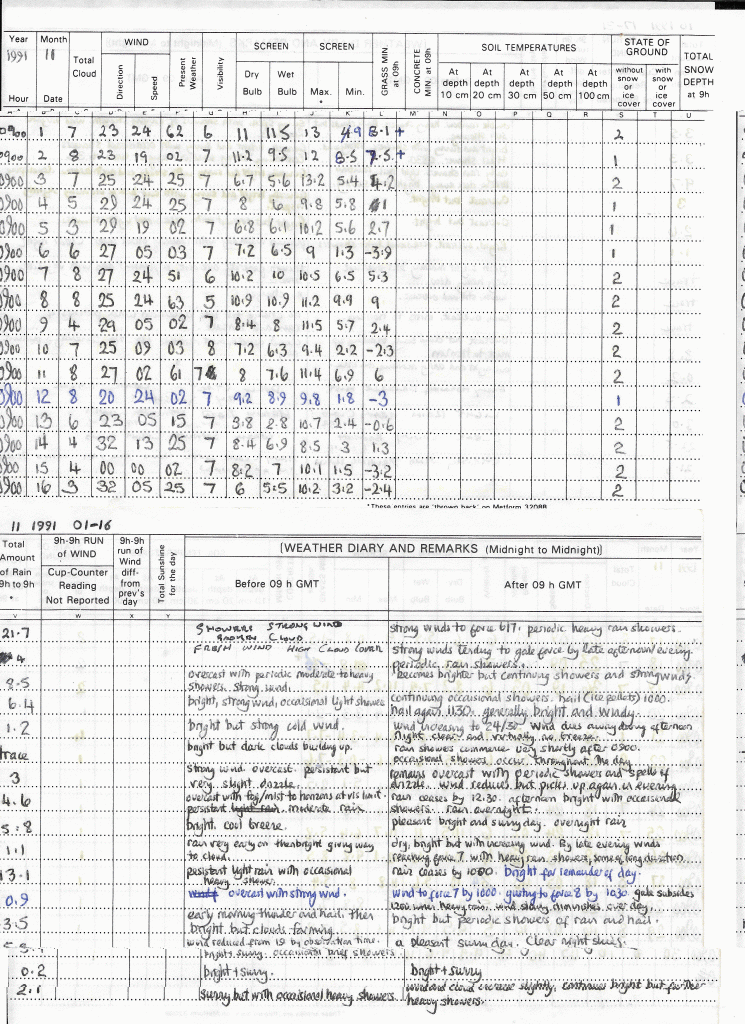 Year 1991 Month 11 Total Cloud WIND SCREEN SCREEN GRASS MIN. at 09h CONCRETE MIN. at 09h SOIL TEMPERATURES STATE OF GROUND TOTAL SNOW DEPTH at 9h
Direction Speed Present Weather Visibility Dry Bulb Wet Bulb Max. * Min. At depth 10 cm At depth 20 cm At depth 30 cm At depth 50 cm At depth 100 cm without snow or ice cover with snow or ice cover
Hour Date
0900 1 7 23 24 62 6 11 11.5 13 4.9 8.1+ 2
0900 2 8 23 19 02 7 11.2 9.5 12 8.5 7.5+ 1
0900 3 7 25 24 25 7 6.7 5.6 13.2 5.4 4.2 2
0900 4 5 29 24 25 7 8 6 9.8 5.8 1 1
0900 5 3 29 19 02 7 6.8 6.1 10.2 5.6 2.7 1
0900 6 6 27 05 03 7 7.2 6.5 9 1.3 -3.9 1
0900 7 8 27 24 51 6 10.2 10 10.5 6.5 5.3 2
0900 8 8 25 24 63 5 10.9 10.9 11.2 9.9 9 2
0900 9 4 29 05 02 7 8.4 8 11.5 5.7 2.4 2
0900 10 7 25 09 03 8 7.2 6.3 9.4 2.2 -2.3 2
0900 11 8 27 02 61 7 8 7.6 11.4 6.9 6 2
0900 12 8 20 24 02 7 9.2 8.9 9.8 1.8 -3 1
0900 13 6 23 05 15 7 3.8 2.8 10.7 2.4 -0.6 2
0900 14 4 32 13 25 7 8.4 6.9 8.5 3 1.3 2
0900 15 4 00 00 02 7 8.2 7 10.1 1.5 -3.2 2
0900 16 3 32 05 25 7 6 5.5 10.2 3.2 -2.4 2
*These entries are 'thrown back' on Metform 3208B
11 1991 01-16
Total Amount of Rain 9h to 9h * 9h-9h RUN of WIND Cup-Counter Reading Not Reported 9h-9h run of Wind diff- from prev's day Total Sunshine for the day [WEATHER DIARY AND REMARKS (Midnight to Midnight)]
Before 09 h GMT After 09 h GMT
21.7 SHOWERS STRONG WIND BROKEN CLOUD strong winds to force 6/7. periodic heavy rain showers.
4 FRESH WIND HIGH CLOUD COVER strong winds tending to gale force by late afternoon/evening periodic rain showers.
8.5 overcast with periodic moderate to heavy showers. strong wind. becomes brighter but continuing showers and strong winds
6.4 bright, strong wind, occassional light showers continuing occassional showers. hail (ice pellets) 1000. hail again 11.30. generally bright and windy.
1.2 bright but strong cold wind. wind increasing to 24/30. Wind dies away during afternoon night clear and virtually no breeze.
trace bright but dark clouds building up. rain showers commence very shortly after 0900. occassional showers occur throughout the day
3 strong wind. overcast. persistent but very slight drizzle. remains overcast with periodic showers and spells of drizzle. wind reduces but picks up again in evening
4.6 overcast with fog/mist to horizons at vis limit. persistent light rain. moderate rain rain ceases by 12.30. afternoon bright with occasional showers. rain overnight.
5.8 bright. cool breeze. pleasant bright and sunny day. overnight rain
1.1 rain very early on then bright giving way to cloud. dry, bright but with increasing wind. By late evening winds reaching force 7 with heavy rain showers, some of long duration
13.1 persistent light rain with occasional heavy shower. rain ceases by 1000. bright for remainder of day.
0.9 overcast with strong wind. wind to force 7 by 1000. gusting to force 8 by 1030. gale subsides 1200 wind, heavy rain. wind slowly diminishes over day.
3.5 early morning thunder and hail. Then bright but clouds forming. bright but periodic showers of rain and hail.
wind reduced from 19 by observation time. bright + sunny. occasional brief showers a pleasant sunny day. Clear night skies.
0.2 bright + sunny. bright + sunny
2.1 sunny but with occasional heavy showers wind and cloud increase slightly. continues bright but further heavy showers.